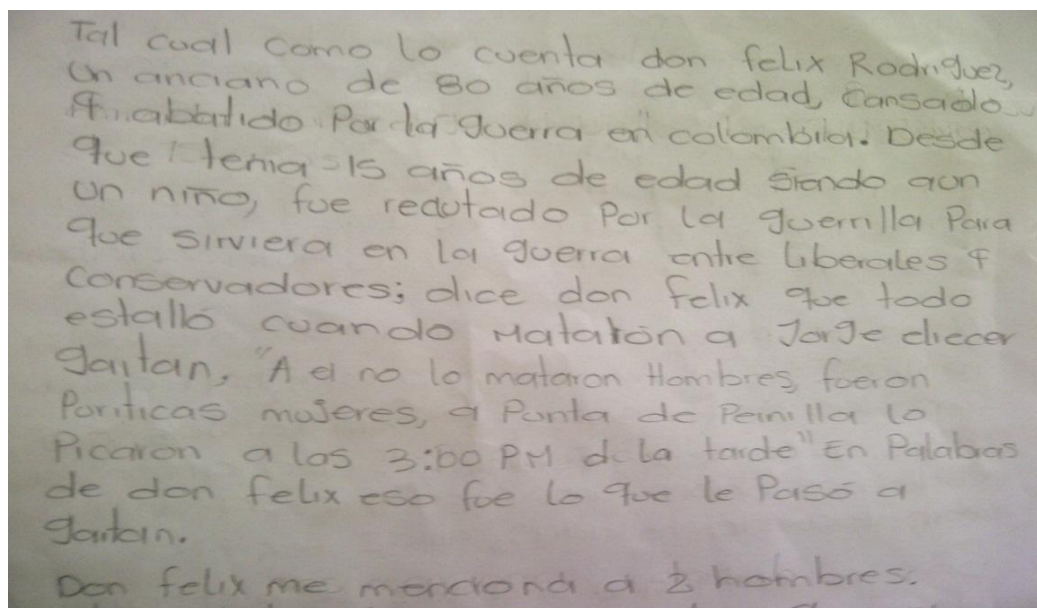 Tal cual como lo cuenta don felix Rodriguez,
un anciano de 80 años de edad, cansado
y abatido Por la guerra en colombia. Desde
que tenia 15 años de edad siendo aun
un niño, fue reclutado Por la guerrilla Para
que sirviera en la guerra entre liberales y
conservadores; dice don felix que todo
estalló cuando Mataron a Jorge eliecer
gaitan. "A el no lo mataron Hombres, fueron
mujeres, a Punta de Peinilla lo
Picaron a las 3:00 PM d la tarde" En Palabras
de don felix eso fue lo que le Pasó a
gaitan.
Don felix me menciona a 2 hombres.